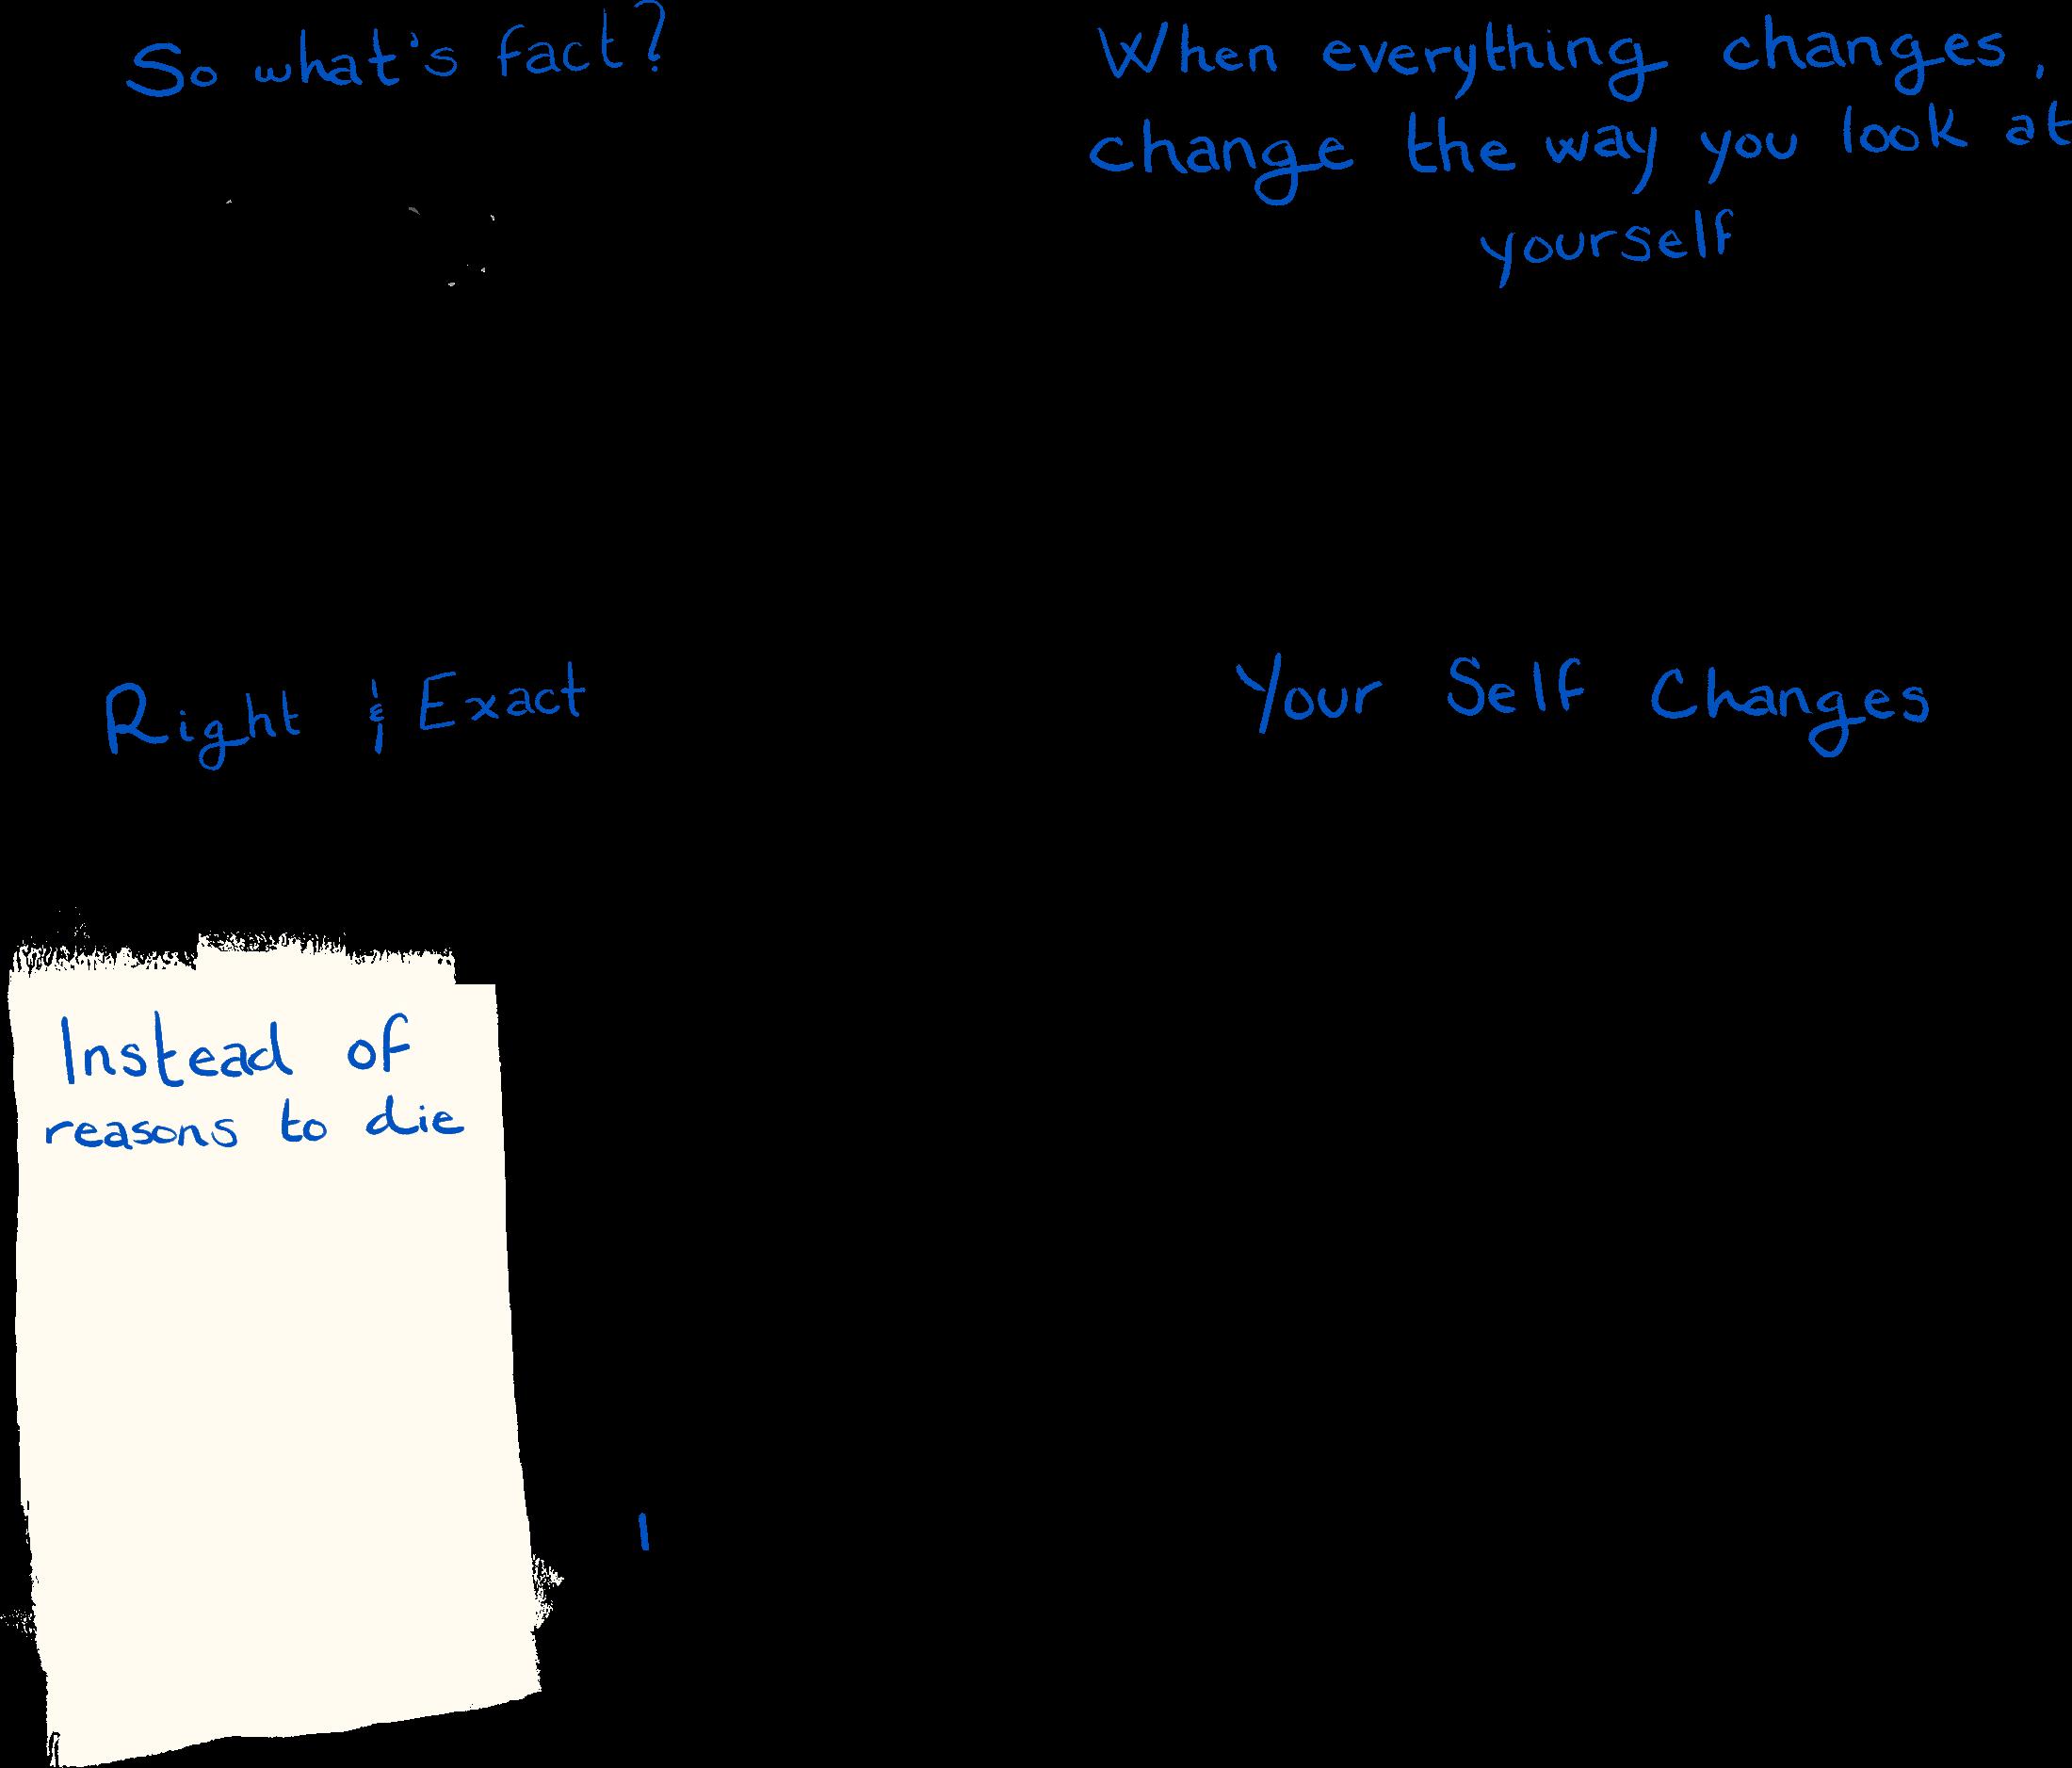 So what's fact?
When everything changes,
change the way you look at
yourself
Right & Exact
Your Self Changes
Instead of
reasons to die